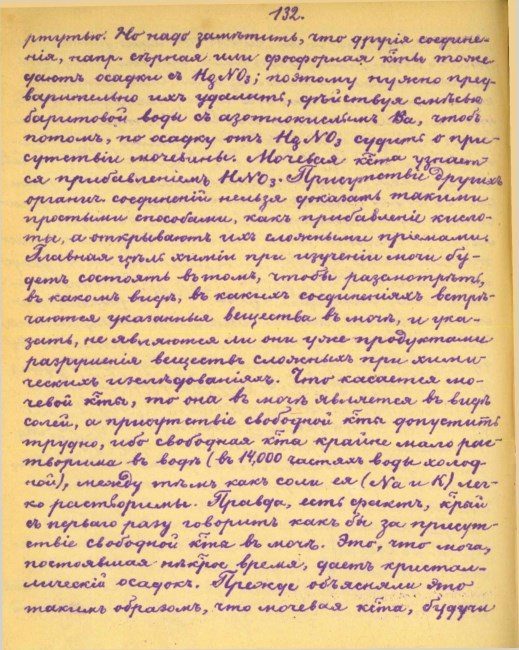 132.
ртутью. Но надо замѣтить, что другія соедине-
нія, напр. сѣрная или фосфорная к͠ты тоже
даютъ осадки съ HgNO3; поэтому нужно пред-
варительно ихъ удалить, дѣйствуя смѣсью
баритовой воды съ азотнокислымъ Ba, чтобъ
потомъ, по осадку отъ HgNO3 судить о при-
сутствіи мочевины. Мочевая к͠та узнает-
ся прибавленіемъ HNO3. Присутствіе другихъ
органич. соединеній нельзя доказать такими
простыми способами, какъ прибавленіе кисло-
ты, а открываютъ ихъ сложными пріемами.
Главная цѣль химіи при изученіи мочи бу-
детъ состоять въ томъ, чтобы разсмотрѣть,
въ какомъ видѣ, въ какихъ соединеніяхъ встрѣ-
чаются указанныя вещества въ мочѣ, и ука-
зать, не являются ли они уже продуктами
разрушенія веществъ сложныхъ при хими-
ческихъ изслѣдованіяхъ. Что касается мо-
чевой к͠ты, то она въ мочѣ является въ видѣ
солей, а присутствіе свободной к͠ты допустить
трудно, ибо свободная к͠та крайне мало рас-
творима въ водѣ (въ 14,000 частяхъ воды холод-
ной), между тѣмъ какъ соли ея (Na и K) лег-
ко растворимы. Правда, есть фактъ, к͠рый
съ перваго разу говоритъ какъ бы за присут-
ствіе свободной к͠ты въ мочѣ. Это, что моча,
постоявшая нѣк͠рое время, даетъ кристал-
лическій осадокъ. Прежде объясняли это
такимъ образомъ, что мочевая к͠та, будучи